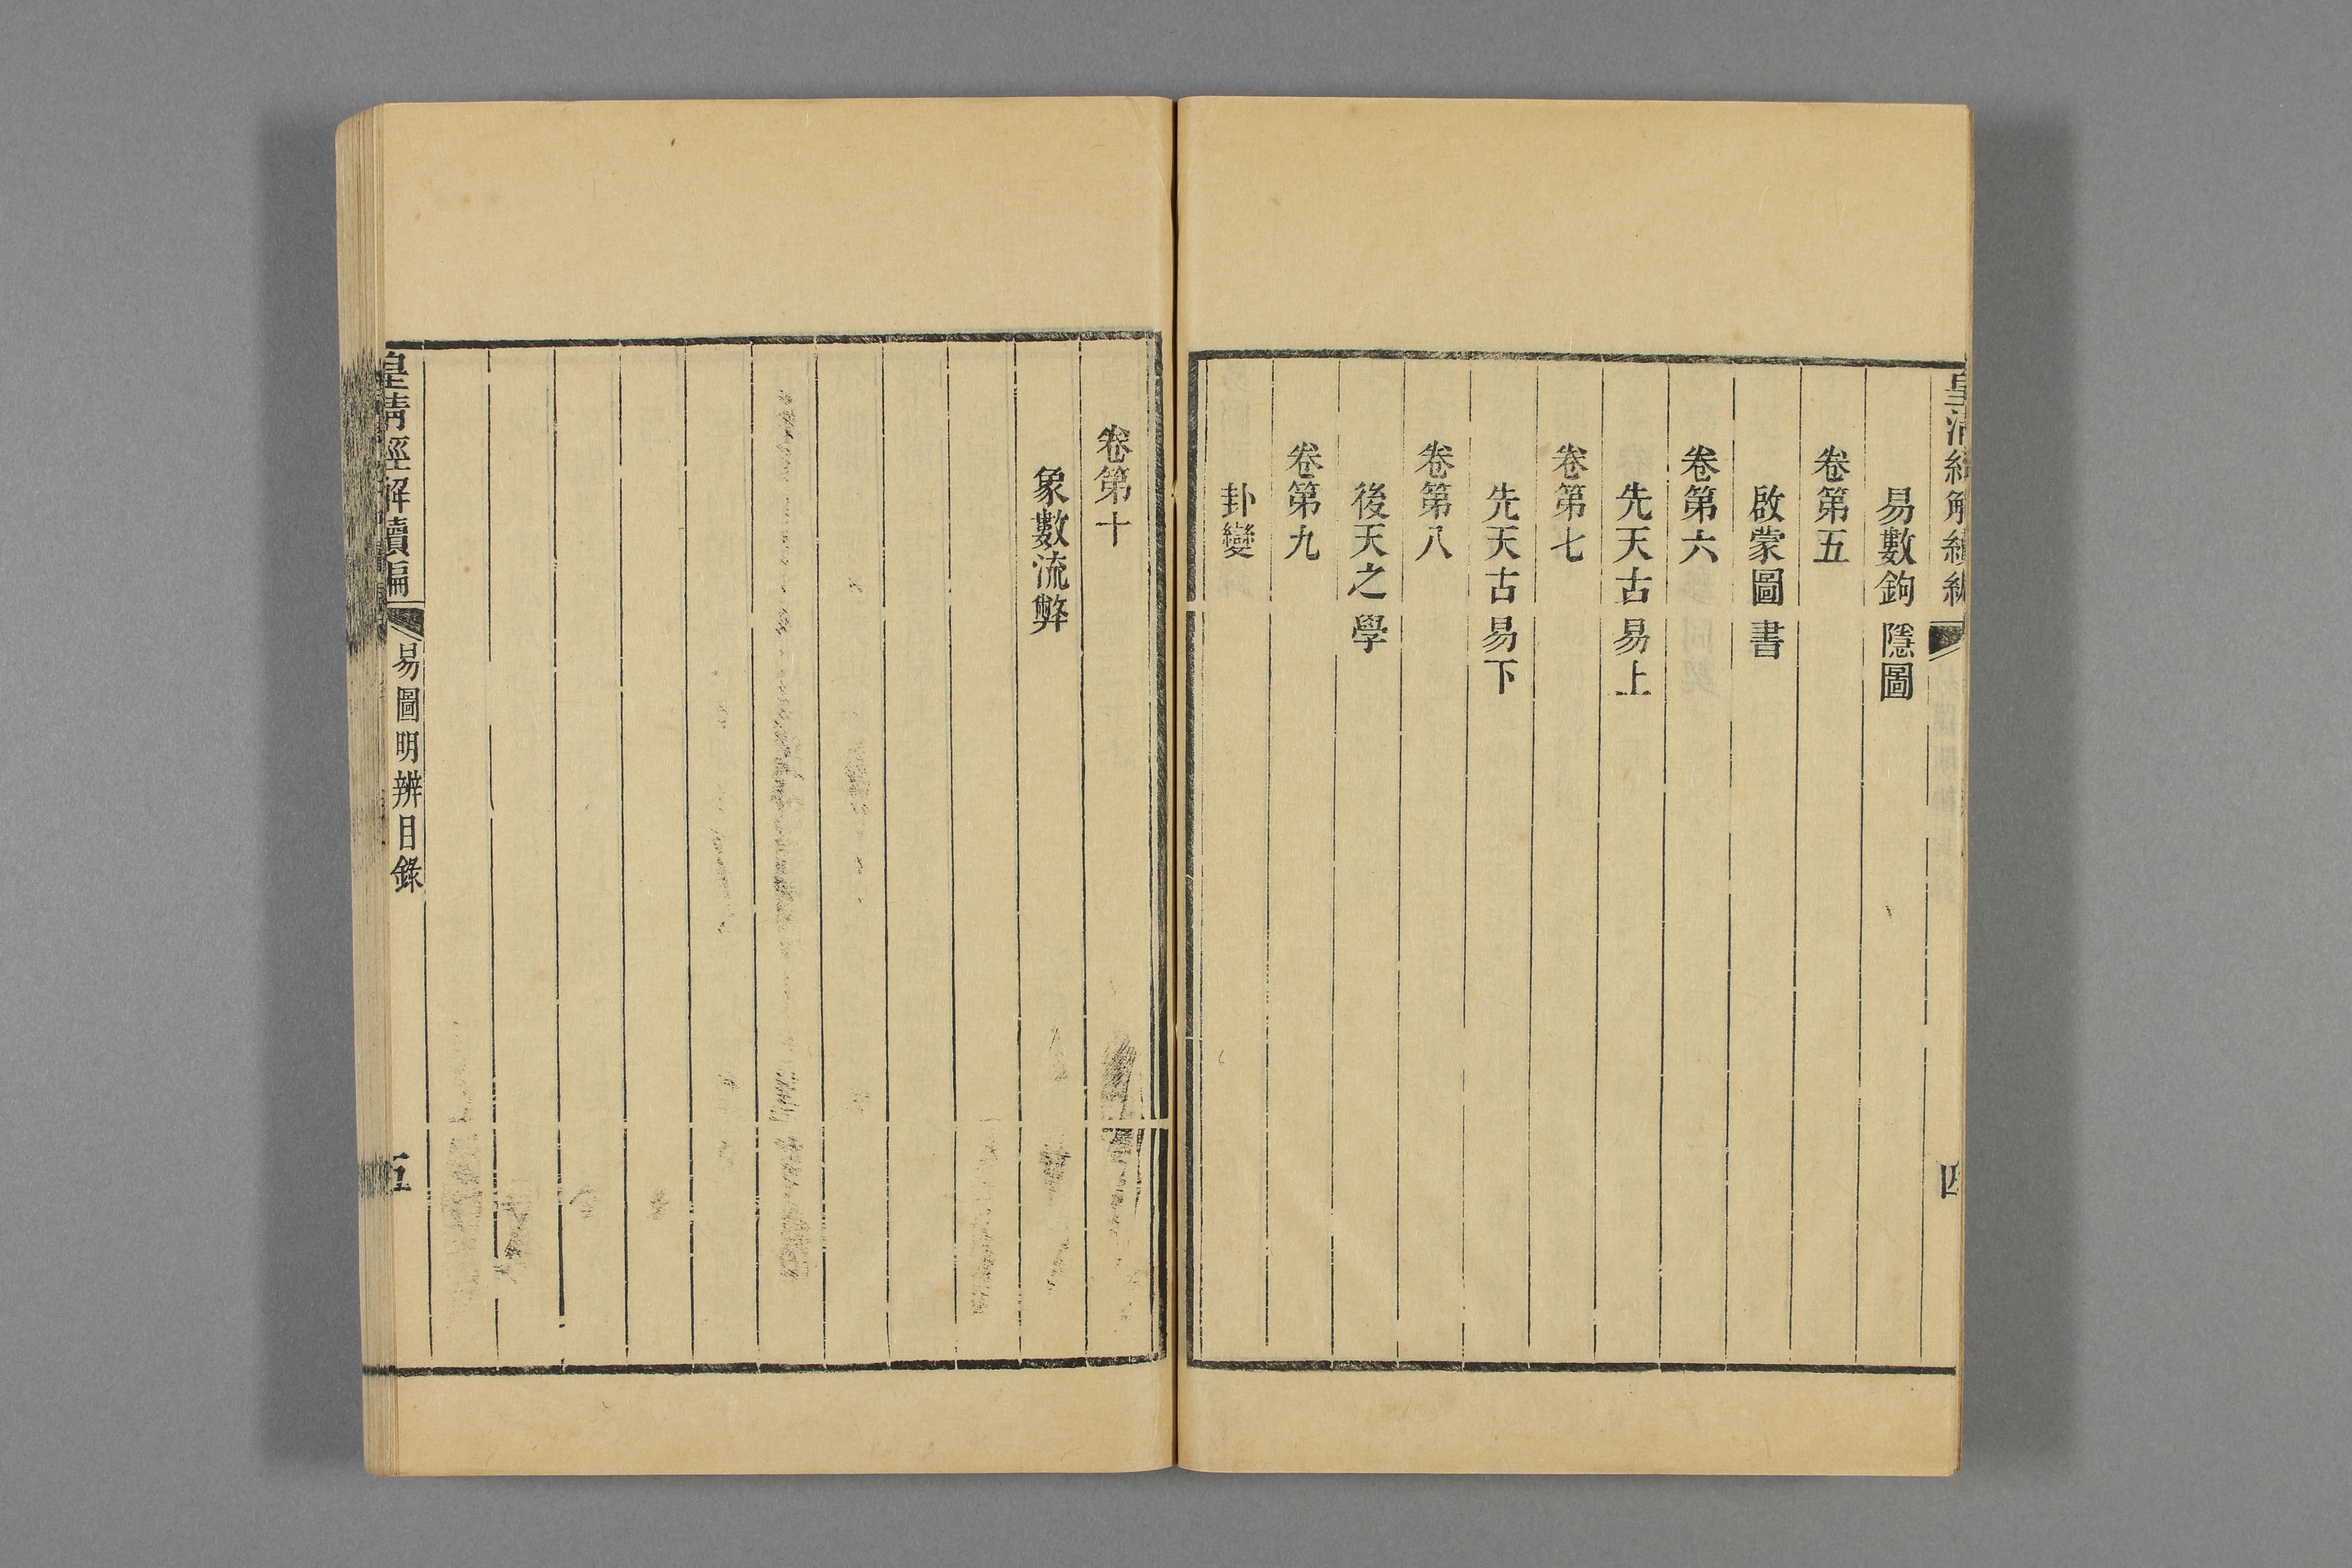 皇清經解續編
四
易數鉤隱圖
卷第五
啟蒙圖書
卷第六
先天古易上
卷第七
先天古易下
卷第八
後天之學
卷第九
卦變
卷第十
象數流弊
皇清經解續編
易圖明辨目錄
五